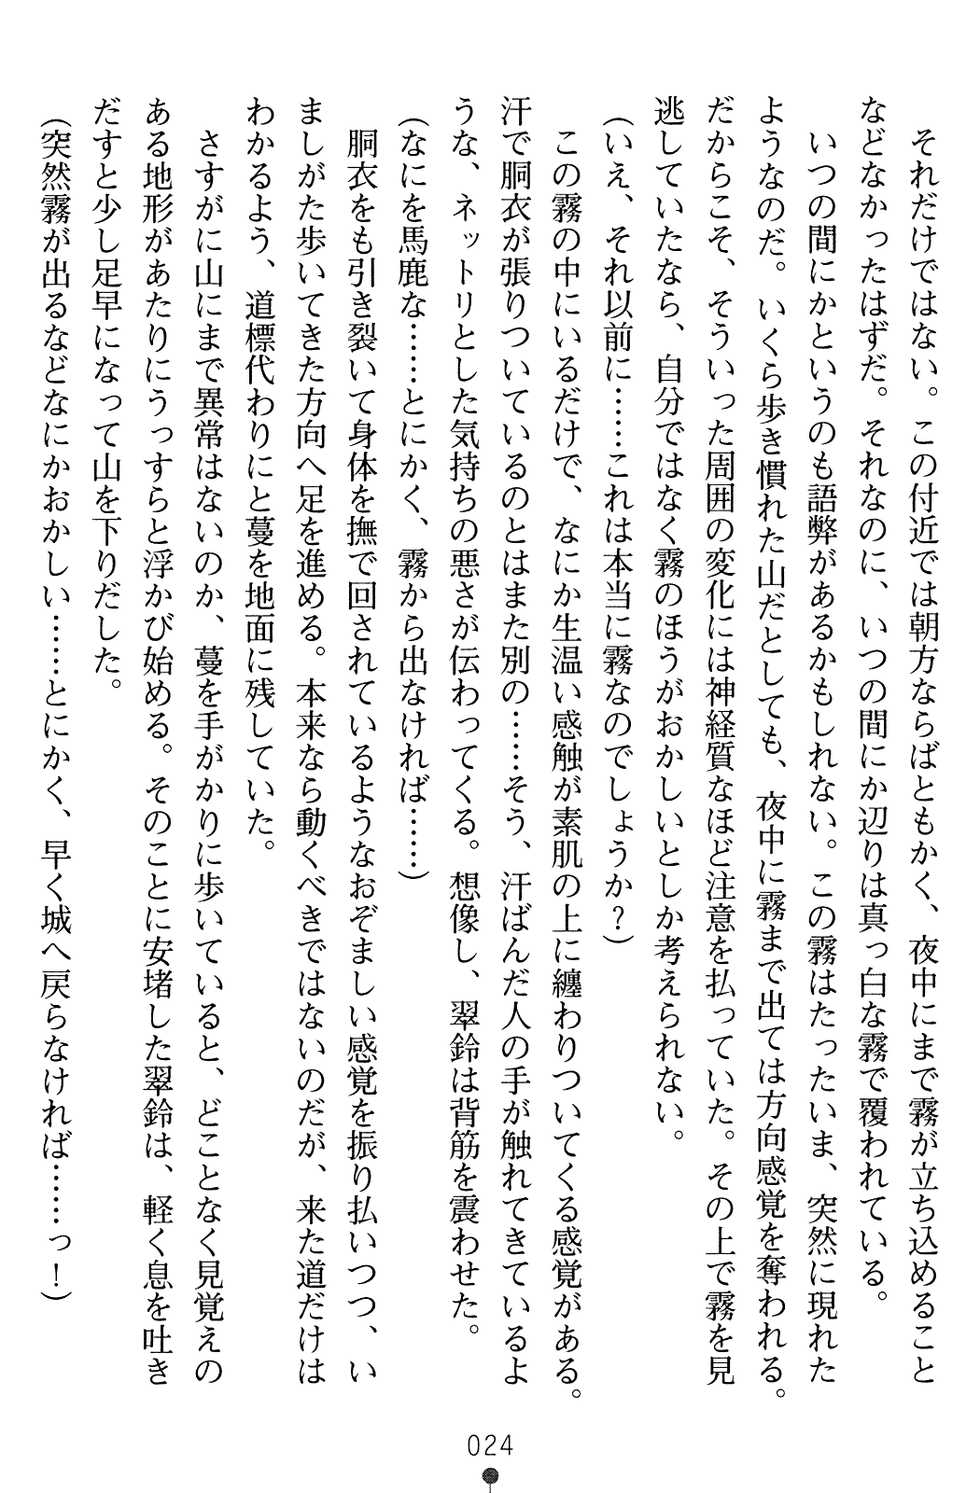 それだけではない。この付近では朝方ならばともかく、夜中にまで霧が立ち込めること
などなかったはずだ。それなのに、いつの間にか辺りは真っ白な霧で覆われている。
　いつの間にかというのも語弊があるかもしれない。この霧はたったいま、突然に現れた
ようなのだ。いくら歩き慣れた山だとしても、夜中に霧まで出ては方向感覚を奪われる。
だからこそ、そういった周囲の変化には神経質なほど注意を払っていた。その上で霧を見
逃していたなら、自分ではなく霧のほうがおかしいとしか考えられない。
（いえ、それ以前に……これは本当に霧なのでしょうか？）
　この霧の中にいるだけで、なにか生温い感触が素肌の上に纏わりついてくる感覚がある。
汗で胴衣が張りついているのとはまた別の……そう、汗ばんだ人の手が触れてきているよ
うな、ネットリとした気持ちの悪さが伝わってくる。想像し、翠鈴は背筋を震わせた。
（なにを馬鹿な……とにかく、霧から出なければ……）
　胴衣をも引き裂いて身体を撫で回されているようなおぞましい感覚を振り払いつつ、い
ましがた歩いてきた方向へ足を進める。本来なら動くべきではないのだが、来た道だけは
わかるよう、道標代わりにと蔓を地面に残していた。
　さすがに山にまで異常はないのか、蔓を手がかりに歩いていると、どことなく見覚えの
ある地形があたりにうっすらと浮かび始める。そのことに安堵した翠鈴は、軽く息を吐き
だすと少し足早になって山を下りだした。
（突然霧が出るなどなにかおかしい……とにかく、早く城へ戻らなければ……っ！）
024